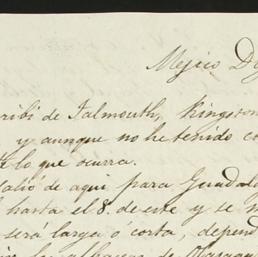 Mejico D
ribi de Falmouth, Kingston
y aunque no he tenido co
lo que ocurra.
alió de aqui para Guadala
hasta el 8. de este y se
será larga ó corta, depend